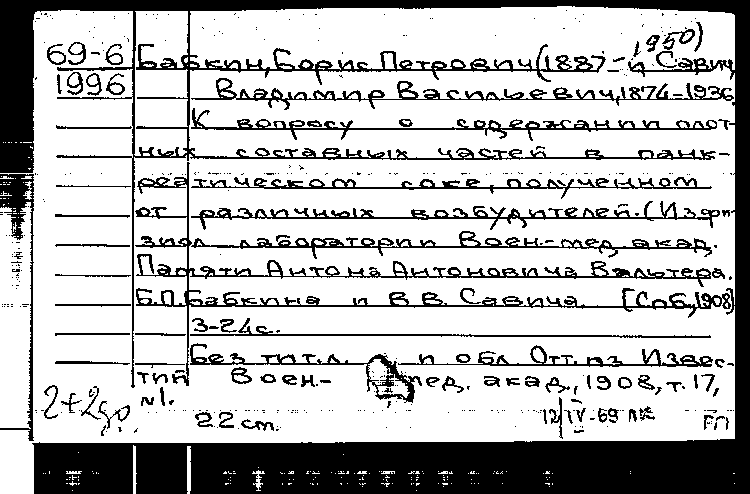 1950)
69-6 Бабкин, Борис Петрович (1887- и Савич,
1996 Владимир Васильевич, 1874-1936.
К вопросу о содержании плот-
ных составных частей в панк-
реатическом соке, полученном
от различных возбудителей. (Из физи-
зиол лаборатории Воен.-мед. акад.
Памяти Антона Антоновича Вальтера.
Б.П. Бабкина и В.В. Савича. [Спб, 1908]
3-24с.
Без тит.л. и обл Отт. из Извес-
тий Воен.- мед. акад., 1908, т. 17,
№1.
2+2др.
22 ст.
12/IV-69 ГП